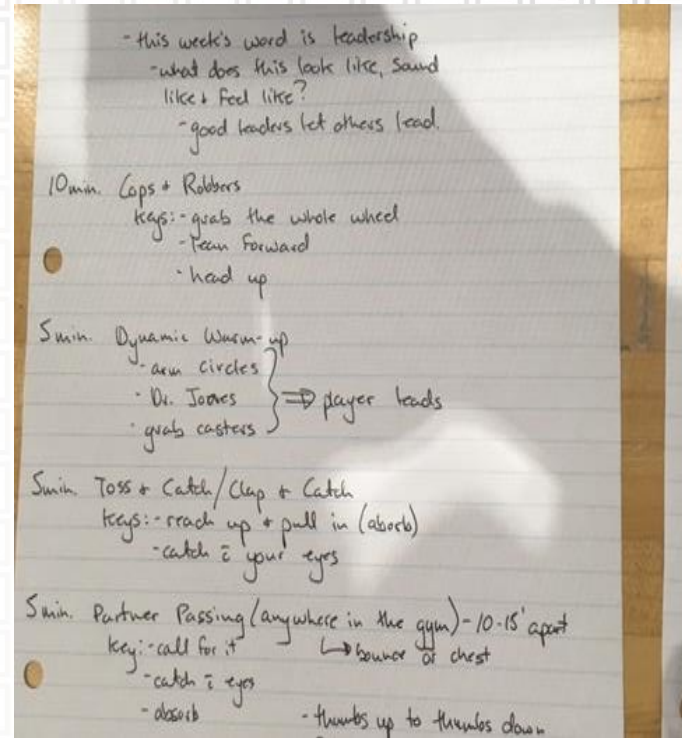 - this week's word is leadership
- what does this look like, sound
like + feel like?
- good leaders let others lead.
10 min. Cops + Robbers
Keys: - grab the whole wheel
- lean forward
- head up
5 min. Dynamic Warm-up
- arm circles
- Dr. J
- grab casters
⇒ player leads
5 min. Toss + Catch / Clap + Catch
Keys: - reach up + pull in (absorb)
- catch c̄ your eyes
5 min. Partner Passing (anywhere in the gym) - 10-15' apart
key: - call for it
↳ bounce or chest
- catch c̄ eyes
- absorb
- thumbs up to thumbs down